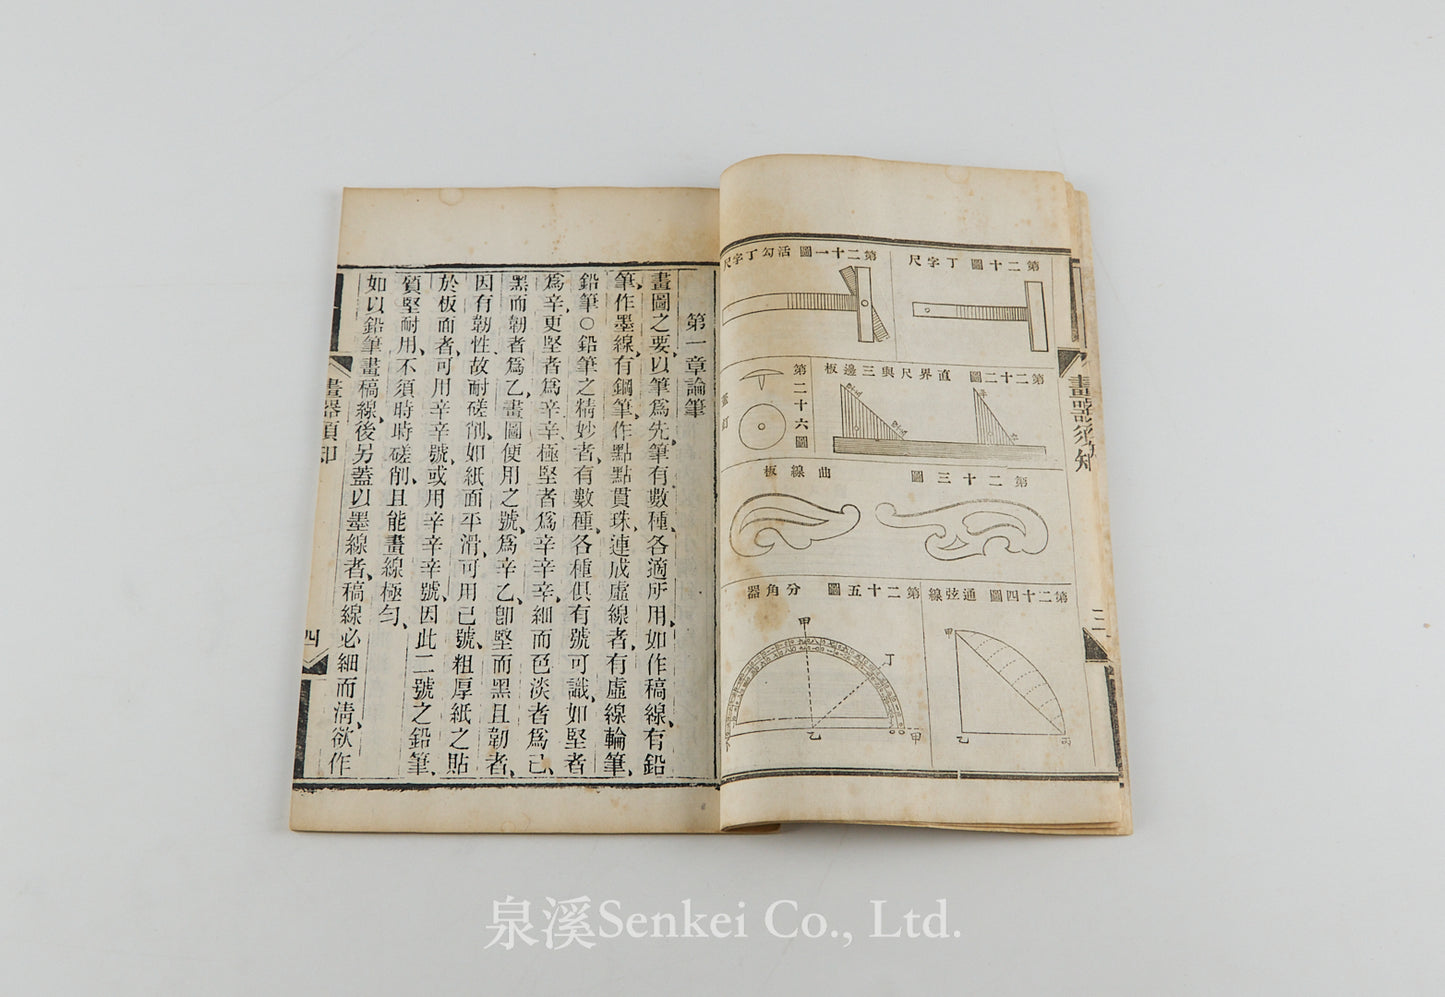 第二十圖 丁字尺
第二十一圖 活勾丁字尺
第二十二圖 直界尺與三邊板
第二十六圖
第二十三圖 曲線板
第二十四圖 通弦線
甲
乙
丙
第二十五圖 分角器
甲
丁
乙
甲
畫器須知
三
第一章論筆
畫圖之要、以筆爲先、筆有數種、各適所用、如作稿線、有鉛
筆、作墨線、有鋼筆、作點點貫珠、連成虛線者、有虛線輪筆、
鉛筆○鉛筆之精妙者、有數種、各種俱有號可識、如堅者
爲辛、更堅者爲辛辛、極堅者爲辛辛辛、細而色淡者爲己、
黑而韌者爲乙、畫圖便用之號、爲辛乙、卽堅而黑且韌者、
因有韌性、故耐磋削、如紙面平滑、可用己號、粗厚紙之貼
於板面者、可用辛辛號、或用辛辛辛號、因此二號之鉛筆、
質堅耐用、不須時時磋削、且能畫線極勻、
如以鉛筆畫稿線、後另蓋以墨線者、稿線必細而淸、欲作
畫器須知
四
泉溪Senkei Co., Ltd.